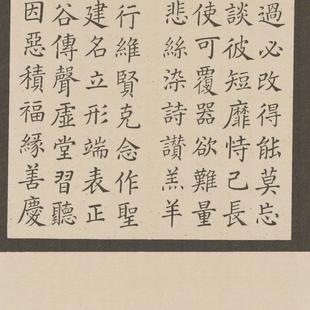 過必改得能莫忘
談彼短靡恃己長
使可覆器欲難量
悲絲染詩讃羔羊
行維賢克念作聖
建名立形端表正
谷傳聲虛堂習聽
因惡積福緣善慶